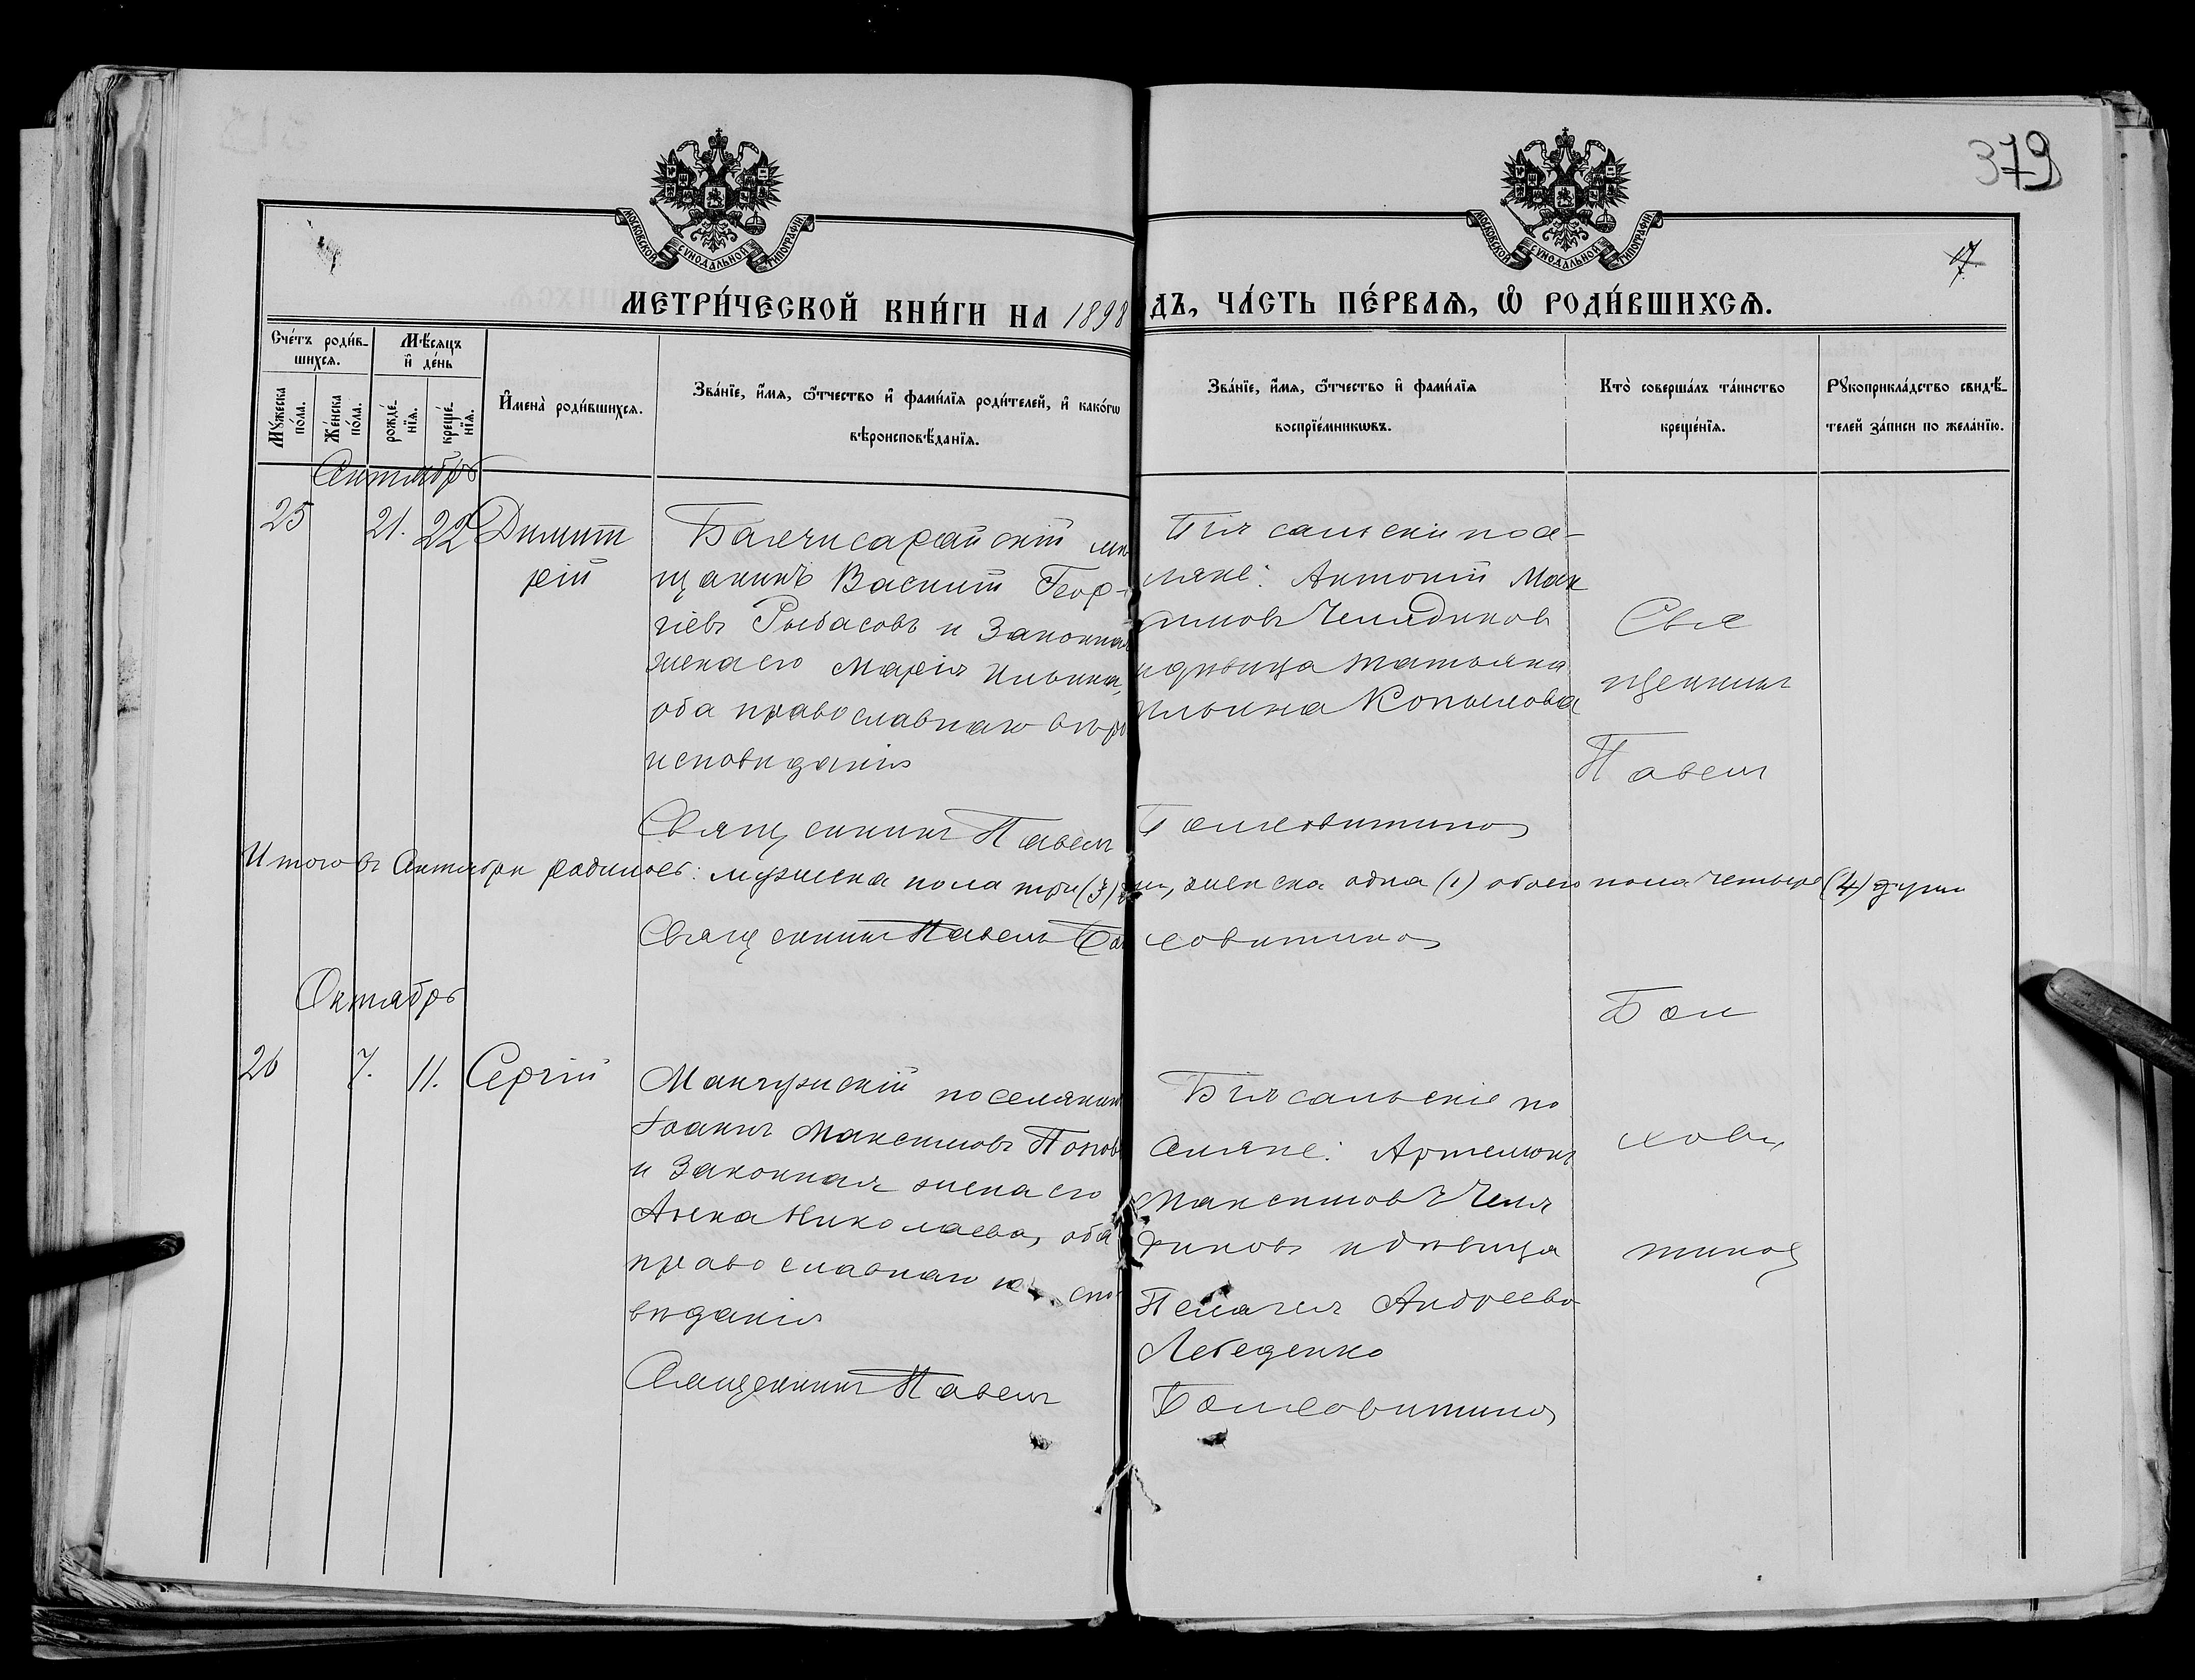 379
17
МОСКОВСКОЙ СѴНОДАЛЬНОЙ ТИПОГРАФІИ
МОСКОВСКОЙ СѴНОДАЛЬНОЙ ТИПОГРАФІИ
МЕТРИ́ЧЕСКОЙ КНИ́ГИ НА 1898 ДЪ, ЧА́СТЬ ПЕ́РВАѦ, Ѽ РОДИ́ВШИХСѦ.
Сче́тъ роди́вшихсѧ.
Мꙋ́жеска по́ла.
Же́нска по́ла.
Мѣ́сѧцъ и҆ де́нь
рожде́нїѧ.
креще́нїѧ.
И҆мена̀ роди́вшихсѧ.
Зва́нїе, и҆́мѧ, ѻ҆́тчество и҆ фами́лїѧ роди́телей, и҆ како́гѡ
вѣроисповѣ́данїѧ.
Зва́нїе, и҆́мѧ, ѻ҆́тчество и҆ фами́лїѧ
воспрїе́мникѡвъ.
Кто̀ соверша́лъ та́инство
креще́нїѧ.
Рꙋкоприкла́дство свидѣ́-
телей за́писи по жела́нїю.
Сентябрь
25 21. 22 Димит
рій
Бахчисарайскій мѣ
щанинъ Василій Геор-
гіевъ Рыбасовъ и законная
жена его Марія Ильина,
оба православнаго вѣро
исповѣданія
Біясальскіе посе-
ляне: Антоній Мак
симовъ Челядиновъ
и дѣвица Татьяна
Ильина Копылова
Свя
щенникъ
Павелъ
Священникъ Павелъ Болховитинов
Итого въ Сентябрѣ родилось: мужеска пола три (3) женска одна (1) обоего пола четыре (4) души
Священникъ Павелъ Болховитинов
Октябрь
26 7. 11. Сергій
Мангушскій поселянинъ
Іоаннъ Максимовъ Попов
и законная жена его
Анна Николаева, оба
православнаго испо
вѣданія
Біясальскіе по
селяне: Артемонъ
Максимовъ Челя
диновъ и дѣвица
Пелагія Андреева
Лебеденко
Бол
хови
тинов
Священникъ Павелъ Болховитинов